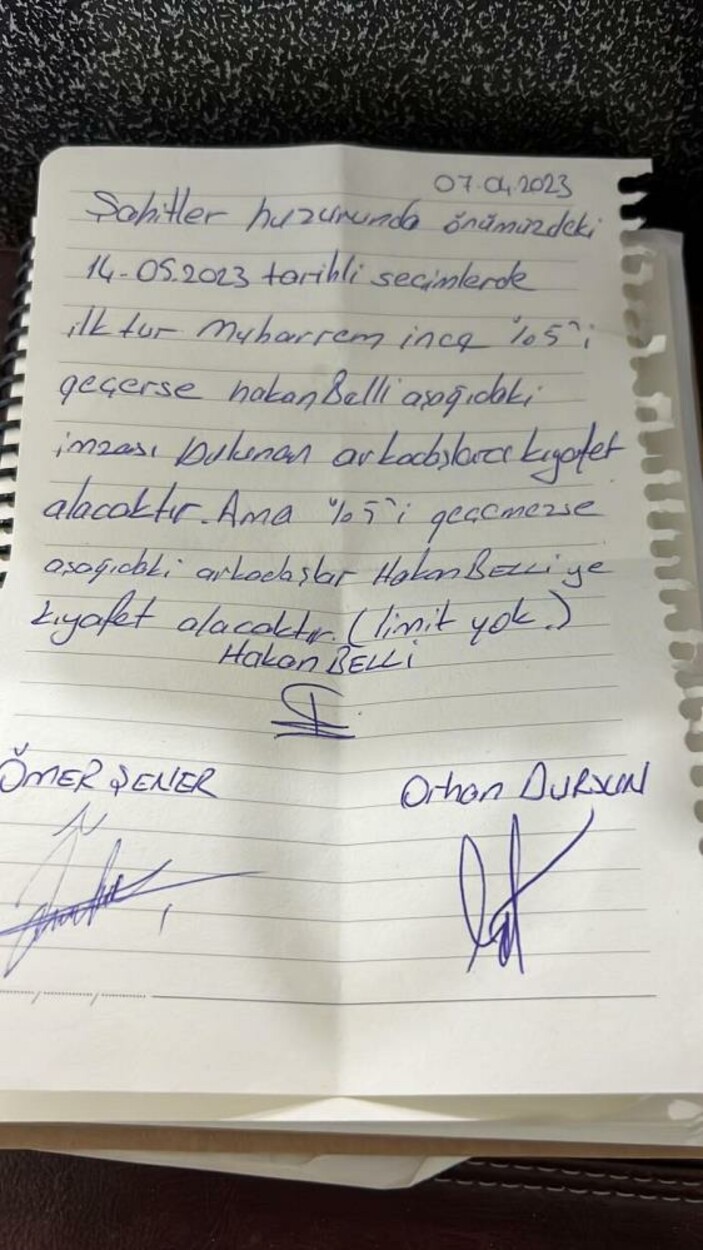 07.04.2023
Şahitler huzurunda önümüzdeki
14-05.2023 tarihli seçimlerde
ilk tur Muharrem ince %5'i
geçerse hakan Belli aşağıdaki
imzası bulunan arkadaşlara kıyafet
alacaktır. Ama %5'i geçmezse
aşağıdaki arkadaşlar Hakan BELLİ ye
kıyafet alacaktır. (limit yok.)
Hakan BELLİ
ÖMER ŞENER Orhan DURSUN